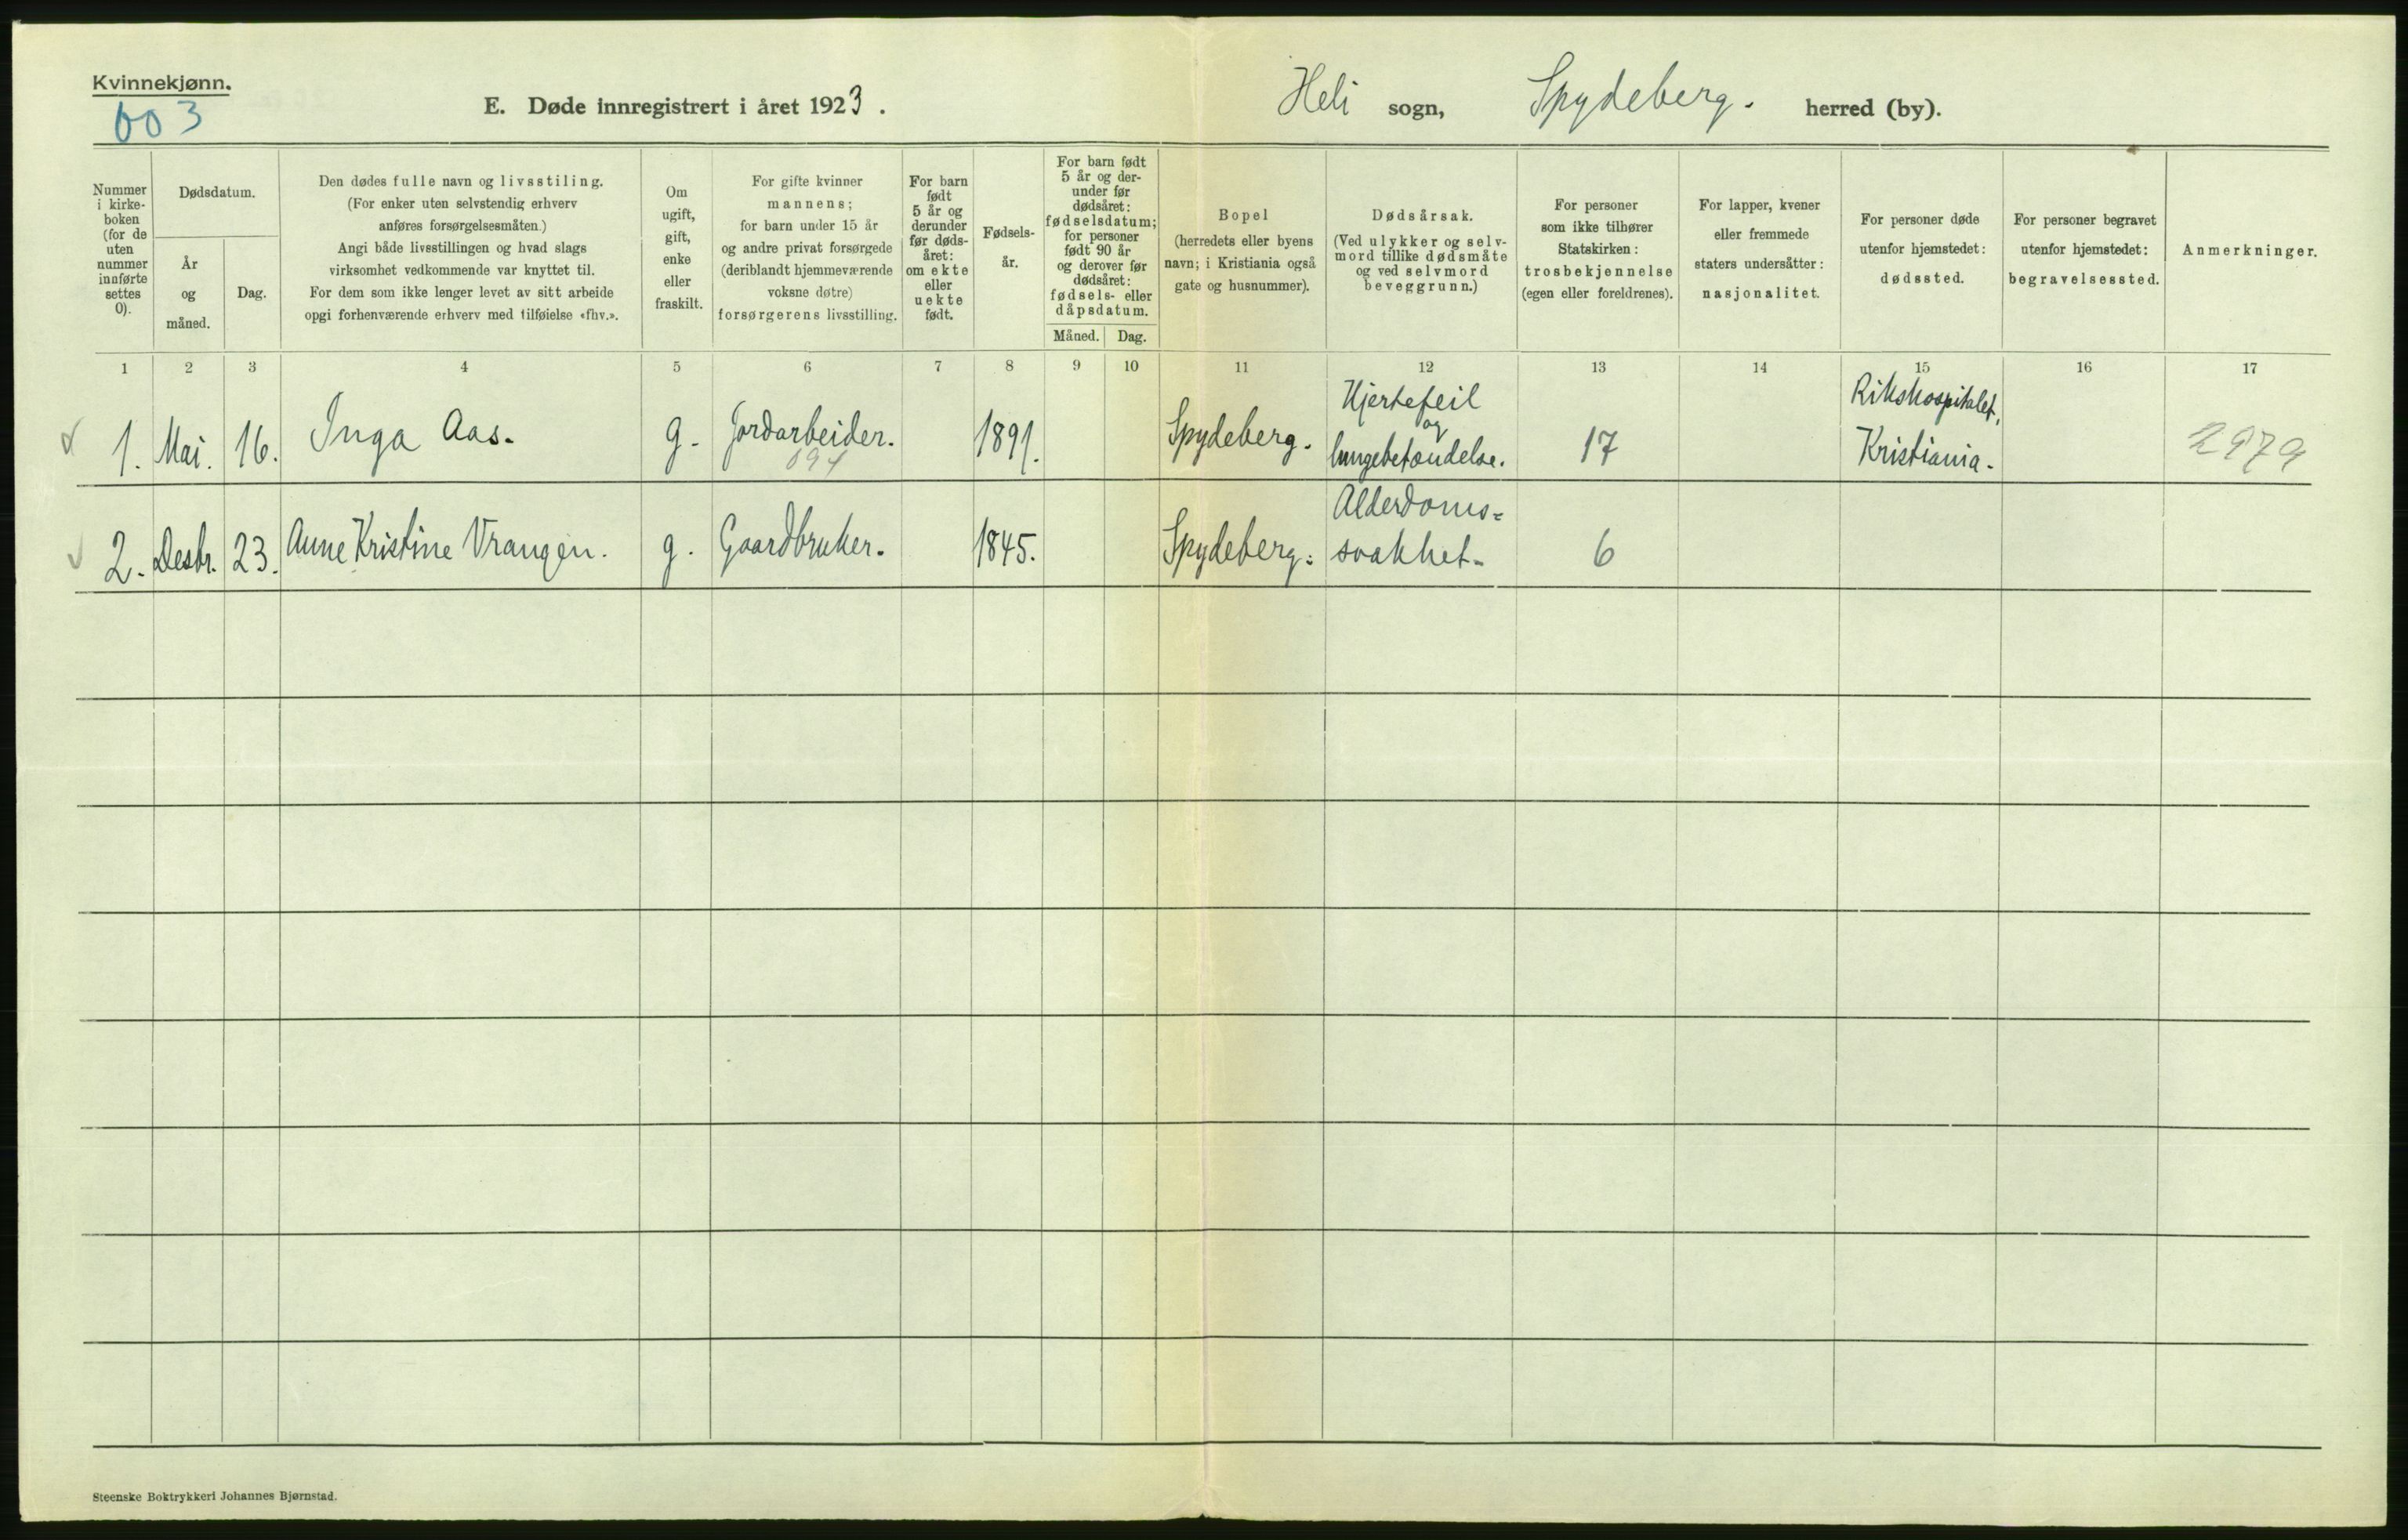 Kvinnekjønn.
603
E. Døde innregistrert i året 1923.
Heli sogn, Spydeberg. herred (by).
Nummer
i kirke-
boken
(for de
uten
nummer
innførte
settes
0).
Dødsdatum.
År
og
måned.
Dag.
Den dødes fulle navn og livsstiling.
(For enker uten selvstendig erhverv
anføres forsørgelsesmåten.)
Angi både livsstillingen og hvad slags
virksomhet vedkommende var knyttet til.
For dem som ikke lenger levet av sitt arbeide
opgi forhenværende erhverv med tilføielse «fhv.».
Om
ugift,
gift,
enke
eller
fraskilt.
For gifte kvinner
mannens;
for barn under 15 år
og andre privat forsørgede
(deriblandt hjemmeværende
voksne døtre)
forsørgerens livsstilling.
For barn
født
5 år og
derunder
før døds-
året:
om ekte
eller
uekte
født.
Fødsels-
år.
For barn født
5 år og der-
under før
dødsåret:
fødselsdatum;
for personer
født 90 år
og derover før
dødsåret:
fødsels- eller
dåpsdatum.
Måned. Dag.
Bopel
(herredets eller byens
navn; i Kristiania også
gate og husnummer).
Dødsårsak.
(Ved ulykker og selv-
mord tillike dødsmåte
og ved selvmord
beveggrunn.)
For personer
som ikke tilhører
Statskirken:
trosbekjennelse
(egen eller foreldrenes).
For lapper, kvener
eller fremmede
staters undersåtter:
nasjonalitet.
For personer døde
utenfor hjemstedet:
dødssted.
For personer begravet
utenfor hjemstedet:
begravelsessted.
Anmerkninger.
1 2 3 4 5 6 7 8 9 10 11 12 13 14 15 16 17
1. Mai. 16. Inga Aas. g. Jordarbeider. 1891. Spydeberg. Hjertefeil
og
lungebetændelse. 17 Rikshospitalet,
Kristiania. 2979
2. Desbr. 23. Anne Kristine Vrangen. g. Gaardbruker. 1845. Spydeberg. Alderdoms=
svakhet. 6
Steenske Boktrykkeri Johannes Bjørnstad.